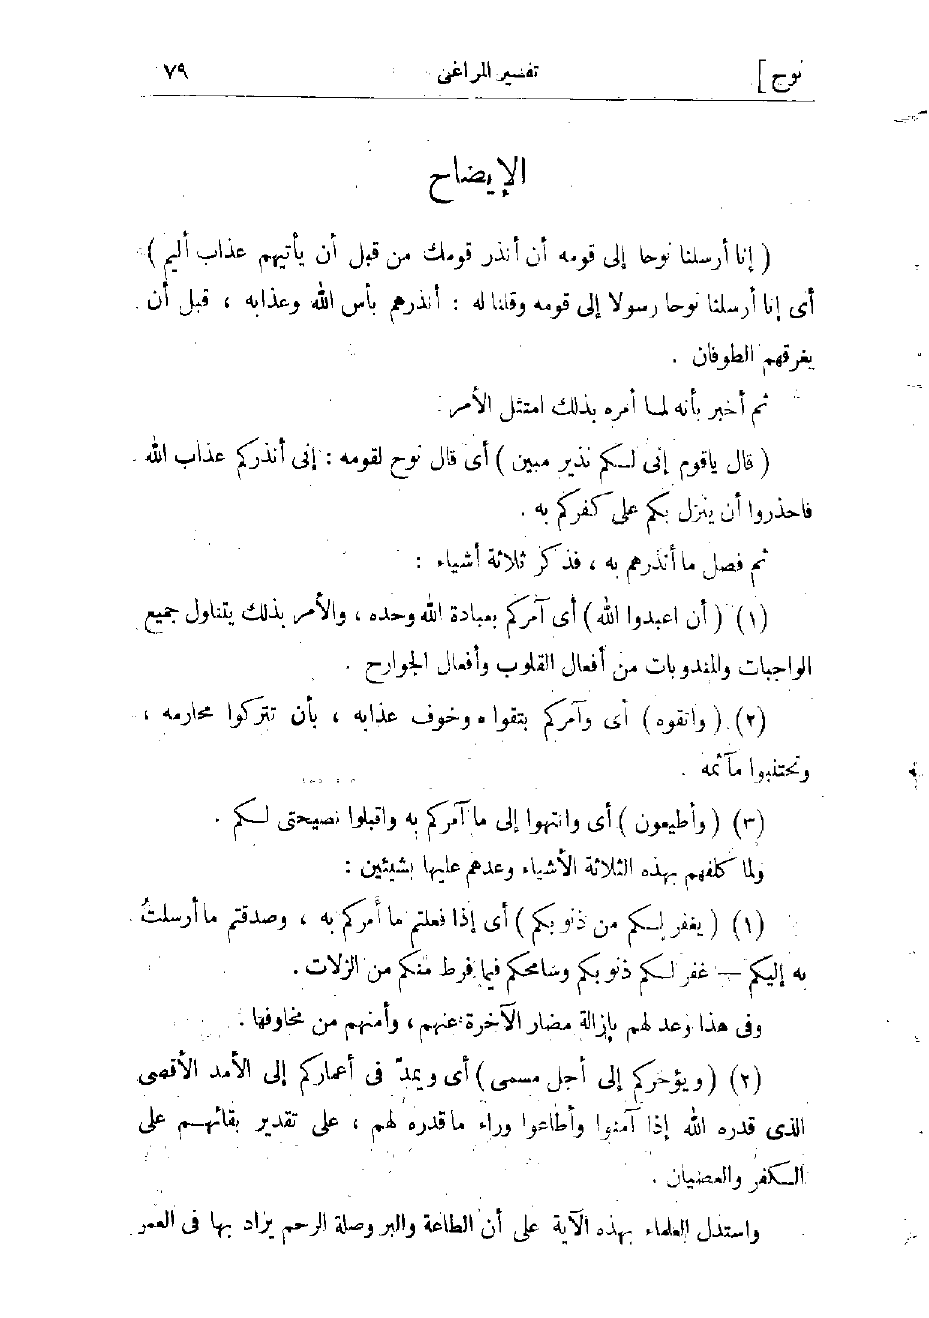 نوح ] تفسير المراغى ٧٩
الإيضاح
( إنا أرسلنا نوحا إلى قومه أن أنذر قومك من قبل أن يأتيهم عذاب أليم )
أى إنا أرسلنا نوحا رسولا إلى قومه وقلنا له : أنذرهم بأس الله وعذابه ، قبل أن
يغرقهم الطوفان .
ثم أخبر بأنه لما أمره بذلك امتثل الأمر :
( قال ياقوم إنى لكم نذير مبين ) أى قال نوح لقومه : إنى أنذركم عذاب الله
فاحذروا أن ينزل بكم على كفركم به .
ثم فصل ما أنذرهم به ، فذكر ثلاثة أشياء :
(١) ( أن اعبدوا الله ) أى آمركم بعبادة الله وحده ، والأمر بذلك يتناول جميع
الواجبات والمندوبات من أفعال القلوب وأفعال الجوارح .
(٢) ( واتقوه ) أى وآمركم بتقواه وخوف عذابه ، بأن تتركوا محارمه ،
وتجتنبوا مآثمه .
(٣) ( وأطيعون ) أى وانتهوا إلى ما آمركم به واقبلوا نصيحتى لكم .
ولما كلفهم بهذه الثلاثة الأشياء وعدهم عليها بشيئين :
(١) ( يغفر لكم من ذنوبكم ) أى إذا فعلتم ما أمركم به ، وصدقتم ما أرسلتُ
به إليكم — غفر لكم ذنوبكم وسامحكم فيما فرط منكم من الزلات .
وفى هذا وعد لهم بإزالة مضار الآخرة عنهم ، وأمنهم من مخاوفها .
(٢) ( ويؤخركم إلى أجل مسمى ) أى ويمدّ فى أعماركم إلى الأمد الأقصى
الذى قدره الله إذا آمنوا وأطاعوا وراء ما قدره لهم ، على تقدير بقائهم على
الكفر والعصيان .
واستدل العلماء بهذه الآية على أن الطاعة والبر وصلة الرحم يزاد بها فى العمر